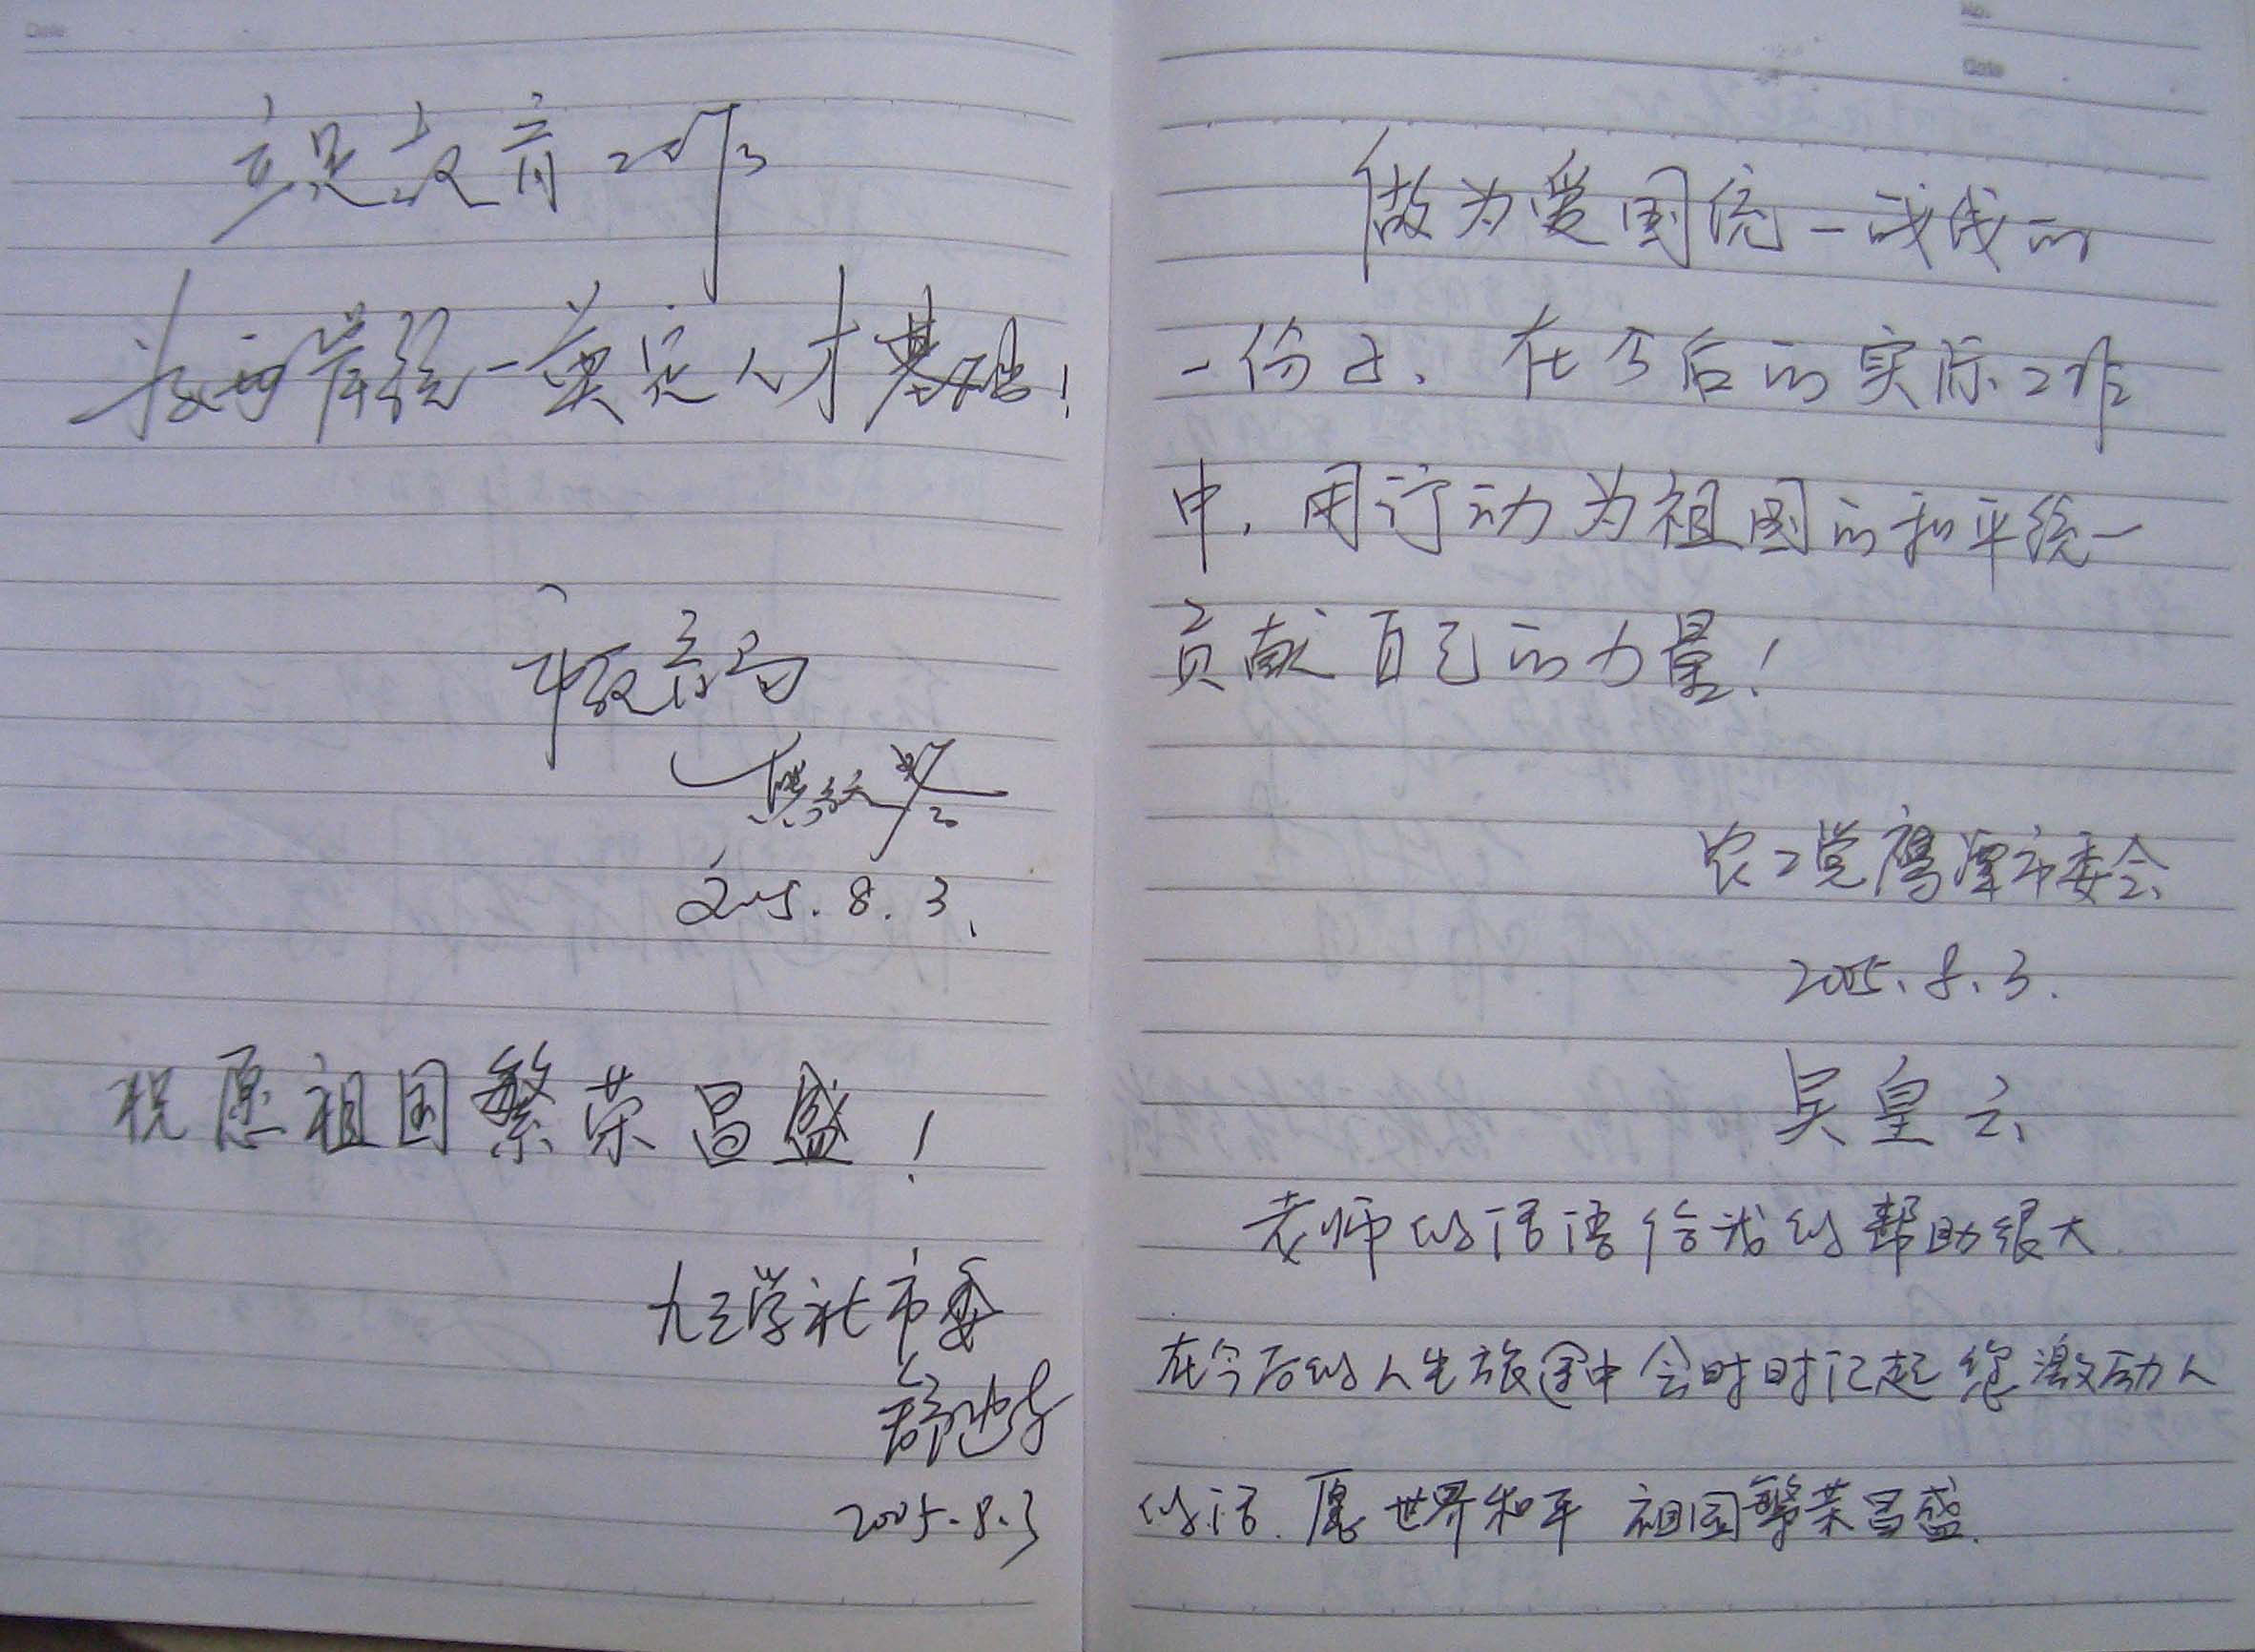 Date
立足教育工作
为两岸统一奠定人才基础!
市教育局
2005.8.3.
祝愿祖国繁荣昌盛!
九三学社市委
2005.8.3
No.
Date
做为爱国统一战线的
一份子、在今后的实际工作
中,用行动为祖国的和平统一
贡献自己的力量!
农工党鹰潭市委会
2005.8.3.
吴皇云
老师的话语给我的帮助很大.
在今后的人生旅途中会时时记起您激励人
的话.愿世界和平 祖国繁荣昌盛.